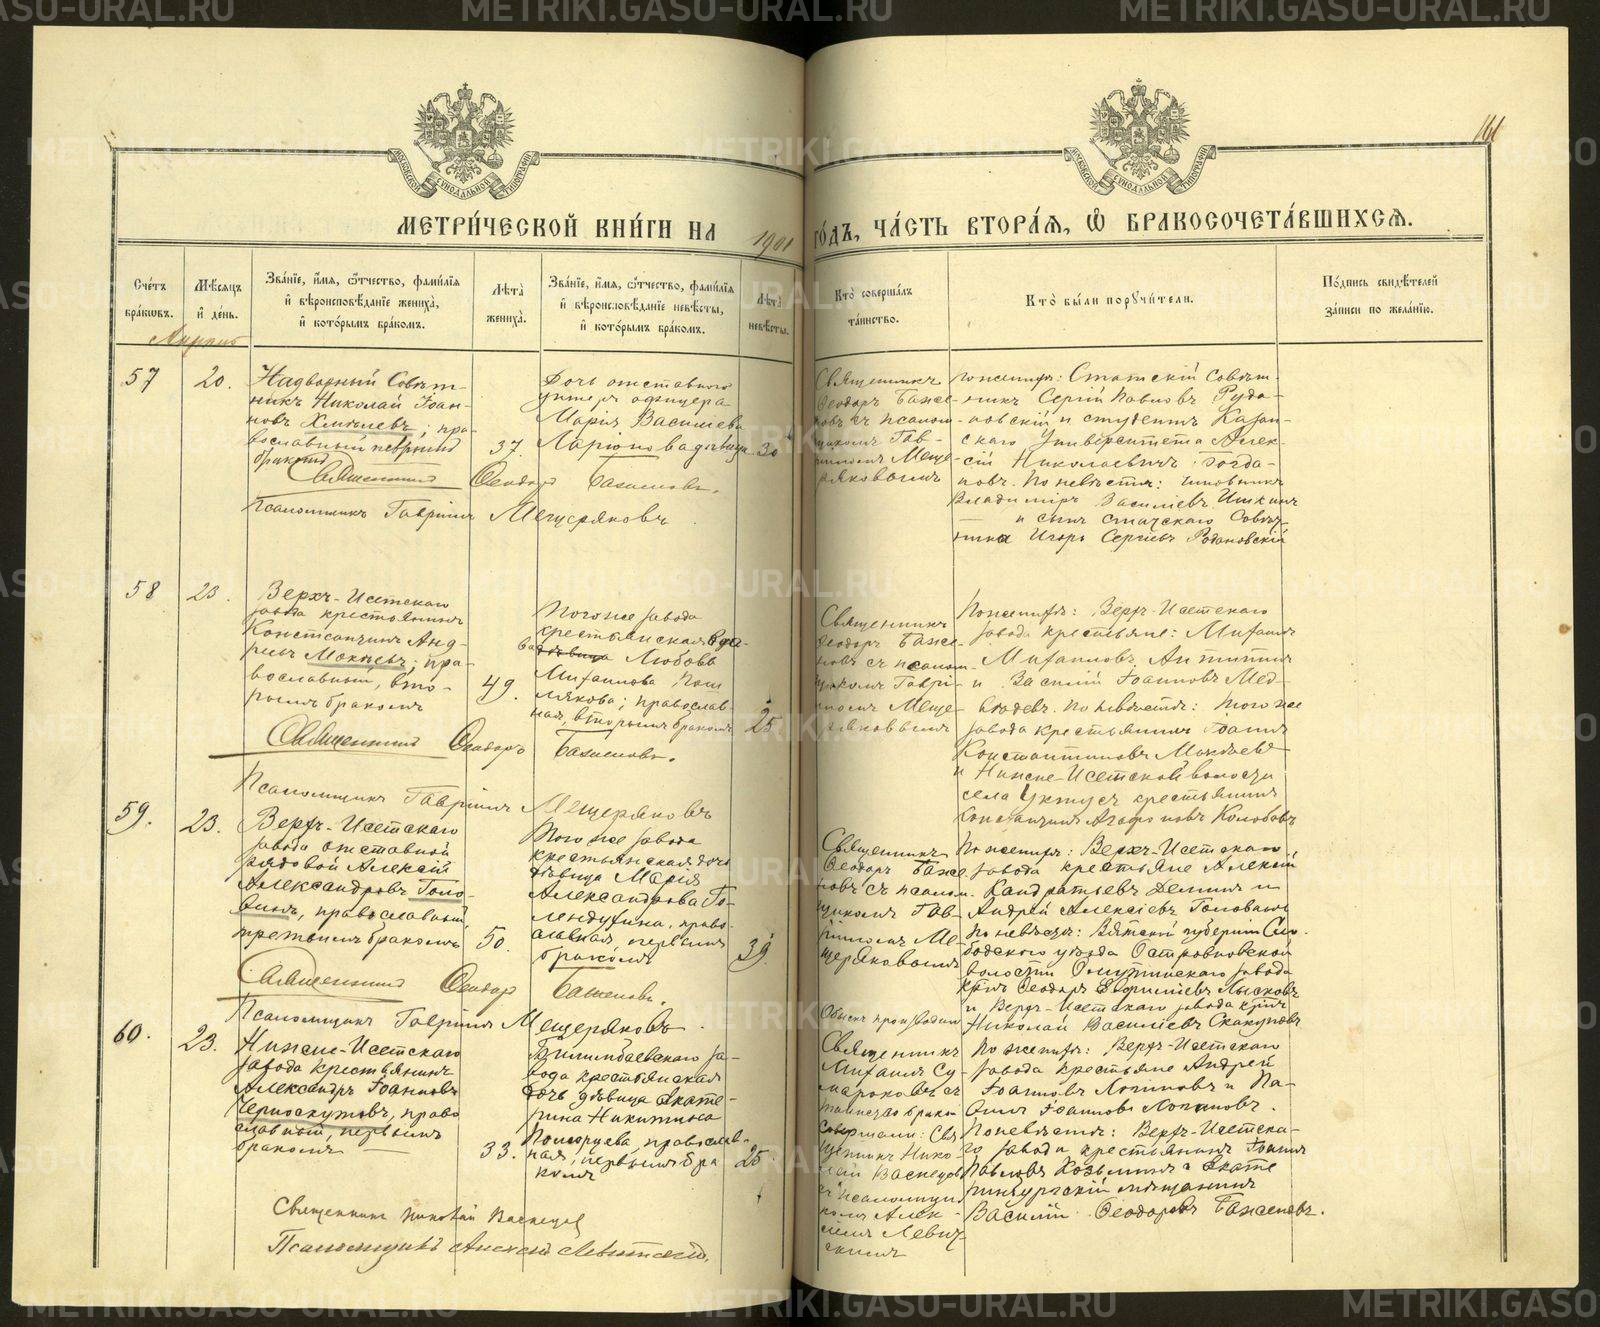 161
МОСКОВСКОЙ СУНОДАЛЬНОЙ ТИПОГРАФИИ
МОСКОВСКОЙ СУНОДАЛЬНОЙ ТИПОГРАФИИ
МЕТРИ́ЧЕСКОЙ КНИ́ГИ НА 1901 ГО́ДЪ, ЧА́СТЬ ВТОРА́Я, Ѽ БРАКОСОЧЕТА́ВШИХСЯ.
Сче́тъ бра́ковъ.
Мѣ́сяцъ и҆ де́нь.
Зва́нїе, и҆́мя, ѻ҆́тчество, фами́лїя и҆ вѣроисповѣ́данїе жениха̀, и҆ кото́рымъ бра́комъ.
Лѣ́та жениха̀.
Зва́нїе, и҆́мя, ѻ҆́тчество, фами́лїя и҆ вѣроисповѣ́данїе невѣ́сты, и҆ кото́рымъ бра́комъ.
Лѣ́та невѣ́сты.
Кто̀ соверша́лъ та́инство.
Кто̀ бы́ли порꙋчи́тели.
По́дпись свидѣ́телей за́писи по жела́нїю.
57
20.
Надворный Совѣт-
никъ Николай Іоан-
новъ Хмѣлевъ; пра-
вославный первымъ
бракомъ
37.
Дочь отставного
унтеръ офицера
Марія Васильева
Ларіонова дѣвица
30
Священникъ
Ѳеодоръ Баже-
новъ съ псалом-
щикомъ Гав-
ріиломъ Меще-
ряковымъ
По женихѣ: Статскій Совѣт-
никъ Сергій Павловъ Рода-
новскій и студентъ Казан-
скаго Университета Алек-
сѣй Николаевичъ Богда-
новъ. По невѣстѣ: чиновникъ
Владиміръ Васильевъ
и сынъ Статскаго Совѣт-
ника Игорь Сергіевъ Родановскій
Священникъ Ѳеодоръ Баженовъ.
Псаломщикъ Гавріилъ Мещеряковъ
58
23.
Верхъ-Исетскаго
завода крестьянинъ
Константинъ Анд-
реевъ Мокѣевъ; пра-
вославный, вто-
рымъ бракомъ
49.
Того же завода
крестьянская вдо-
ва Любовь
Михаилова
православ-
ная, вторымъ бракомъ
25
Священникъ
Ѳеодоръ Баже-
новъ съ псалом-
щикомъ Гаврі-
иломъ Меще-
ряковымъ
По женихѣ: Верхъ-Исетскаго
завода крестьяне: Михаилъ
Михаиловъ Антипинъ
и Василій Іоанновъ Мед-
вѣдевъ. По невѣстѣ: того же
завода крестьянинъ Іоаннъ
Константиновъ Мокѣевъ
и Нижне-Исетской волости
села Уктуса крестьянинъ
Константинъ Агафоновъ Колобовъ
Священникъ Ѳеодоръ Баженовъ.
Псаломщикъ Гавріилъ Мещеряковъ
59.
23.
Верхъ-Исетскаго
завода отставной
рядовой Алексій
Александровъ Голо-
винъ, православный,
третьимъ бракомъ
50.
Того же завода
крестьянская дочь
дѣвица Марія
Александрова Го-
лендухина, право-
славная, первымъ
бракомъ
39
Священникъ
Ѳеодоръ Баже-
новъ съ псалом-
щикомъ Гав-
ріиломъ Ме-
щеряковымъ
По женихѣ: Верхъ-Исетскаго
завода крестьяне Алексій
Кандратьевъ Деминъ и
Андрей Алексіевъ Головинъ
По невѣстѣ: Вятской губерніи Сло-
бодского уѣзда Островновской
волости Омутнинскаго завода
кр-нъ Ѳеодоръ Евфиміевъ Лысковъ
и Верхъ-Исетскаго завода кр-нъ
Николай Василіевъ Скакуновъ
Священникъ Ѳеодоръ Баженовъ.
Псаломщикъ Гавріилъ Мещеряковъ.
60.
23.
Нижне-Исетскаго
завода крестьянинъ
Александръ Іоанновъ
Черноскутовъ, право
славный, первымъ
бракомъ
33.
Билимбаевскаго за-
вода крестьянская
дочь дѣвица Екате-
рина Никитина
православ-
ная, первымъ бра
комъ
25.
Обыскъ производилъ
Священникъ
Михаилъ Су-
мароковъ
Таинство брака
совершали: Свя-
щенникъ Нико-
лай Васнецовъ
съ псаломщи-
комъ Алек-
сіемъ Левит-
скимъ
По женихѣ: Верхъ-Исетскаго
завода крестьяне Андрей
Іоанновъ Логиновъ и Па-
велъ Іоанновъ Логиновъ.
По невѣстѣ: Верхъ-Исетска-
го завода крестьянинъ Іоаннъ
Павловъ Козьминъ и Екате
ринбургскій мѣщанинъ
Василій Ѳеодоровъ Баженовъ.
Священникъ Николай Васнецов
Псаломщикъ Алексій Левитскій.
METRIKI.GASO-URAL.RU